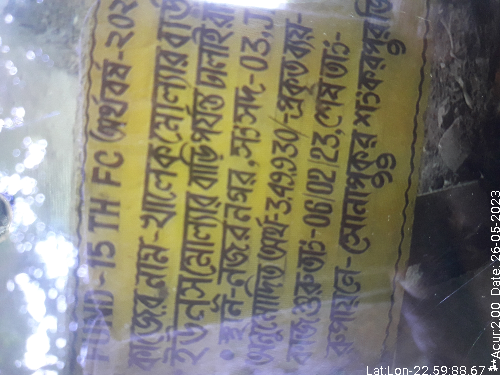 FUND-15 TH FC (অর্থ বর্ষ-202
কাজের নাম-খালেক মোল্যার বাড়ী
ইউনুস মোল্যার বাড়ি পর্যন্ত ঢালাই রা
স্থান-নজরনগর, সংসদ-03, J.
অনুমোদিত অর্থ-3,49,930/-প্রকৃত ব্যয়-
কাজ শুরু তাং-06/02/23, শেষ তাং-
রূপায়নে- সোনাপুকুর শংকরপুর
Lat:Lon-22.59:88.67
**Acur:2.00 Date: 26-05-2023